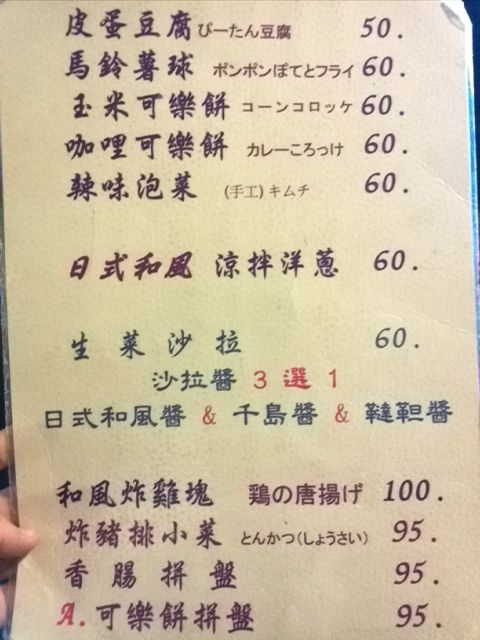 皮蛋豆腐 ぴーたん豆腐 50.
馬鈴薯球 ポンポンぽてとフライ 60.
玉米可樂餅 コーンコロッケ 60.
咖哩可樂餅 カレーころっけ 60.
辣味泡菜 (手工)キムチ 60.
日式和風 涼拌洋蔥 60.
生菜沙拉 60.
沙拉醬 3 選 1
日式和風醬 & 千島醬 & 韃靼醬
和風炸雞塊 鶏の唐揚げ 100.
炸豬排小菜 とんかつ(しょうさい) 95.
香腸拼盤 95.
A.可樂餅拼盤 95.